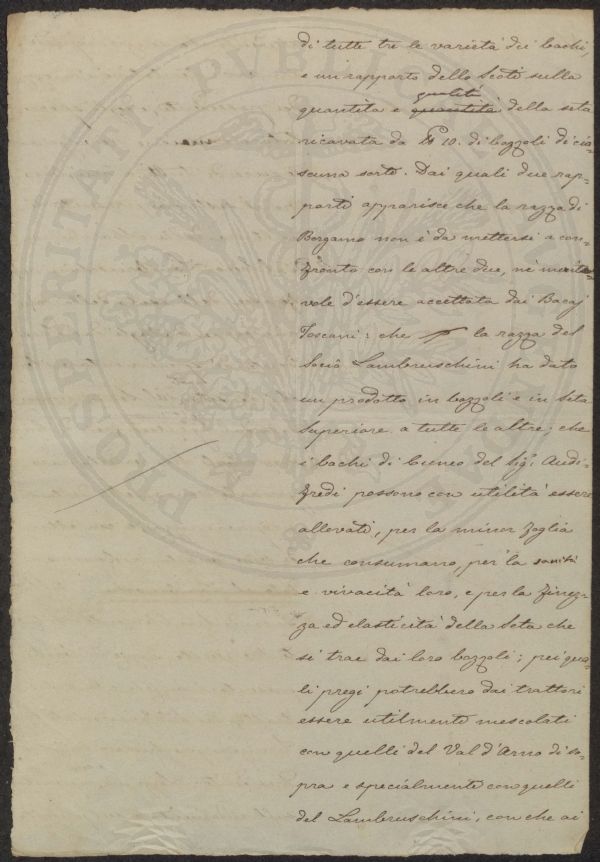 di tutte tre le varietà dei bachi,
e un rapporto dello Scoti sulla
qualità
quantità e quantità della seta
ricavata da ℔ 10. di bozzoli di cia=
scuna sorte. Dai quali due rap=
porti apparisce che la razza di
Bergamo non è da mettersi a con=
fronto con le altre due, nè merite
vole d'essere accettata dai Bacaj
Toscani: che la razza del
Socio Lambruschini ha dato
un prodotto in bozzoli e in seta
superiore a tutte le altre; che
i bachi di Cuneo del Sig.r Audi=
fredi possono con utilità essere
allevati, per la minor foglia
che consumano, per la sanità
e vivacità loro, e per la finez=
za ed elasticità della Seta che
si trae dai loro bozzoli; pei qua=
li pregi potrebbero dai trattori
essere utilmente mescolati
con quelli del Val d'Arno di so=
pra e specialmente con quelli
del Lambruschini, con che ai
PROSPERITATI PUBLICAE